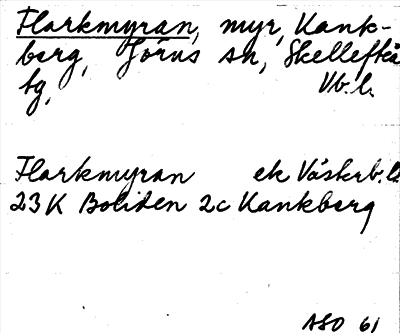 Flarkmyran, myr, Kank-
berg, Jörns sn, Skellefteå
tg, Vb. l.
Flarkmyran ek Västerb. l.
23K Boliden 2c Kankberg
ASO 61